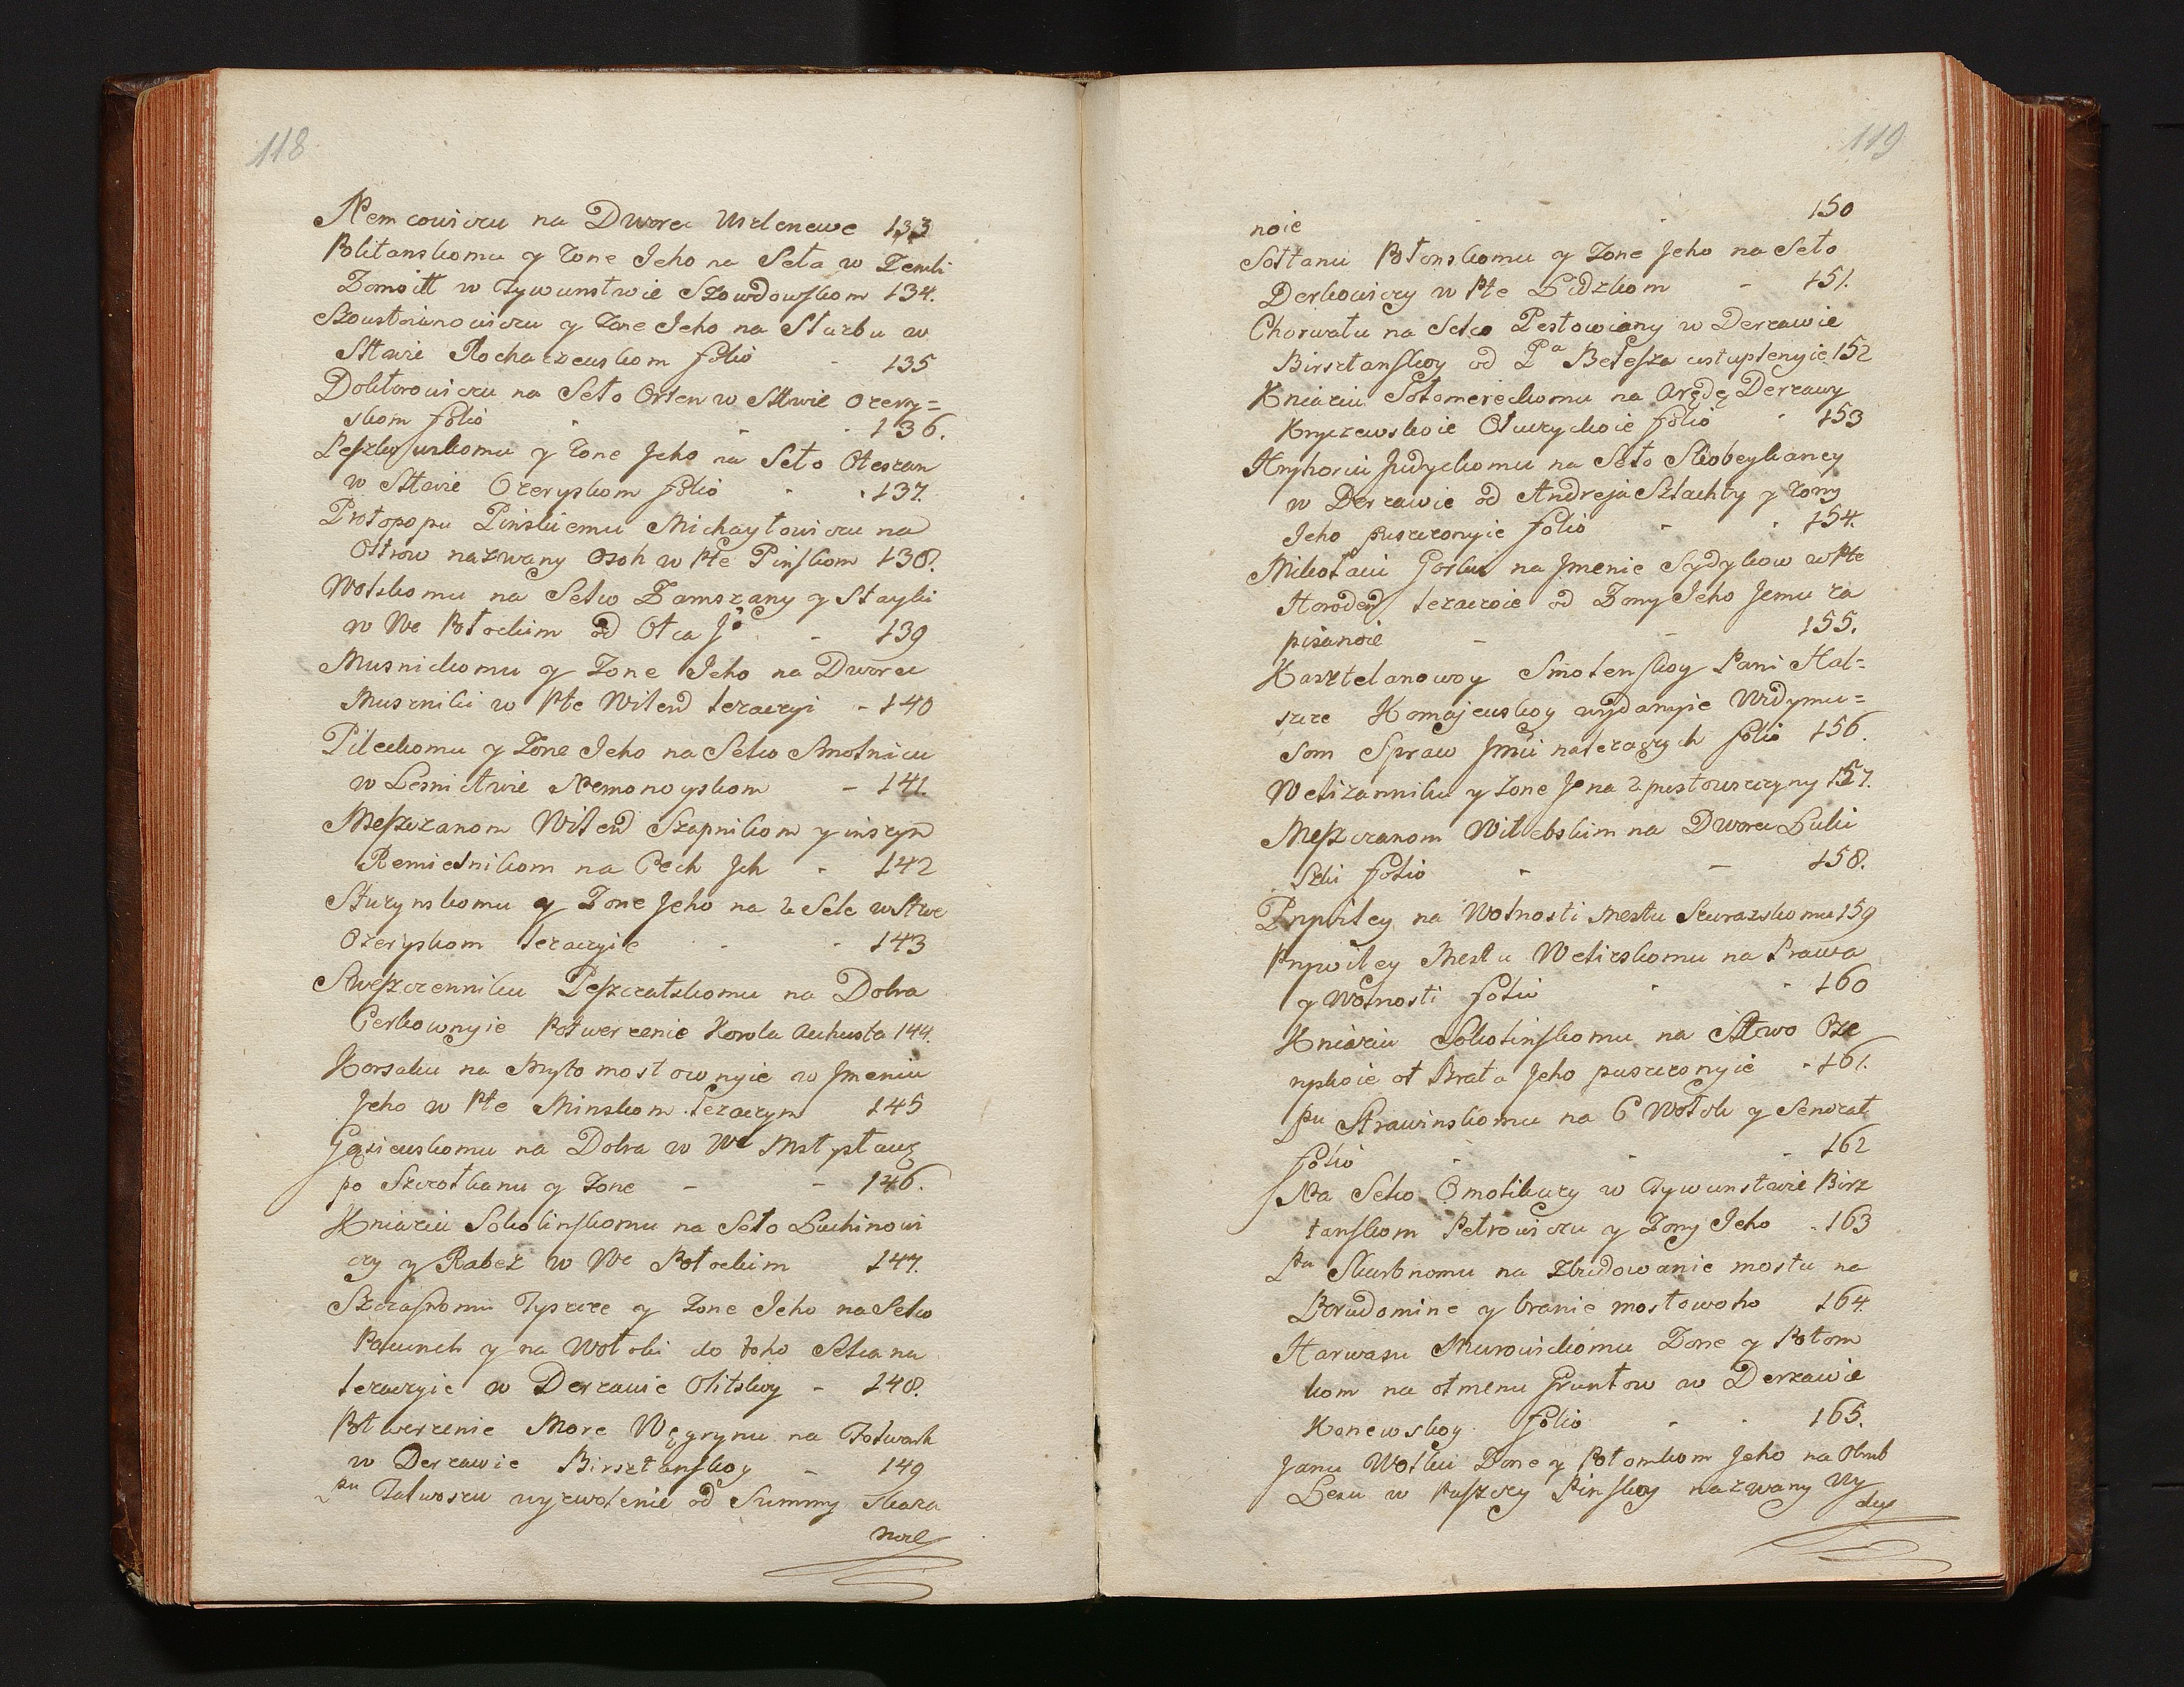 118
Nemcowiczu na Dworec Uzlenewe 133
Politanskomu y Żone Jeho na Seła w Zemli
Żomoitt w Tywunstwie Szowdowskom 134.
Szoustrianowiczu y Żone Jeho na Słuzbu w
Sttwie Rochaczewskom folio - 135
Doktorowiczu na Seło Orlen w Sttwie Ozery=
skom folio - - - 136.
y Żone Jeho na Seło
w Sttwie Ozeryskom folio - - 137.
Protopopu Pińskiemu Michayłowiczu na
Ostrow nazwany Osoh w Pte Pinskom 138.
Wolskomu na Selco Zamszany y Stayki
w We Połockim od Otca Jo - 139
Musnickomu y Żone Jeho na Dworec
Muszniki w Pte Wilend leżaczyi - 140
Pileckomu y Żone Jeho na Selco Smolnicu
w Lesnictwie Nemonoyskom - 141.
Meszczanom Wilend Szapnikom y inszym
Remiesnikom na Cech Jch - 142
Sturynskomu y Żone Jeho na 2 Sele w Stwe
Ozeryskom leżaczyie - - 143
Sweszczenniku Peszczatskomu na Dobra
Cerkownyie Potwerżenie Korola Auhusta 144.
Korsaku na Myto mostownyie w Jmeniu
Jeho w Pte Minskom leżaczym 145
Gąsiewskomu na Dobra w We Mstysławs
po Szczotkanu y Żone - - 146.
Kniaziu Sokolinskomu na Seło Luchinowi
czy y Rabeż w We Połockim 147.
Szczasnomu Tyszcze y Żone Jeho na Selco
Pacunch y na Wołoki do toho Selca na
leżaczyie w Derżawie Olitskoy - 148.
Potwerżenie More Węgrynu na Folwark
w Derżawie Birsztanskoy - 149
Pnu Talwoszu wyzwolenie od Summy Skaza
noie
119
noie - - 150
Sołtanu Połonskomu y Żone Jeho na Seło
Derkowiczy w Pte Lidzkom - 151.
Chorwatu na Selco Pestowiany w Derżawie
Birsztanskoy od Pa Bełesza ustuplenyie 152
Kniaziu Sołomereckomu na Arędę Derżawy
Kryczewskoie Oluczyckoie folio - 153
Hryhoriu Judyckomu na Seło Skobeykancy
w Derżawie od Andreja Szlachty y Żony
Jeho puszczonyie folio - - 154.
Mikołaiu Gorku na Jmenie Sydykow w Pte
Horoden leżaczoie od Żony Jeho Jemu za
pisanoie - - 155.
Kasztelanowoy Smolenskoy Pani Hal=
szce Komajewskoy wydanyie Widymu=
som Spraw Jmu należaczych folio 156.
Welizanniku y Żone Jo na 2 pustowszczyny 157.
Meszczanom Witebskim na Dworec Luki
Szki folio - - 158.
Prywiley na Wolnosti Mestu Surazskomu 159
Prywiley Mestu Weliżskomu na Prawa
y Wolnosti folio - - 160
Kniaziu Sokolinskomu na Sttwo Oze
ryskoie ot Brata Jeho puszczonyie - 161.
Pnu Strawinskomu na 6 Wołok y Senożat
folio - - - 162
Na Selco Omolikury w Tywunstwie Birż
tanskom Petrowiczu y Żony Jeho - 163
Pnu Skarbnomu na Zbudowanie mostu na
Borudomine y branie mostowoho 164.
Harwasu Murowickomu Żone y Potom
kom na otmenu Gruntow w Derżawie
Kanewskoy folio - - 165.
Janu Wolku Żone y Potomkom Jeho na Obrub
Lesu w Puszczy Pinskoy nazwany Wy